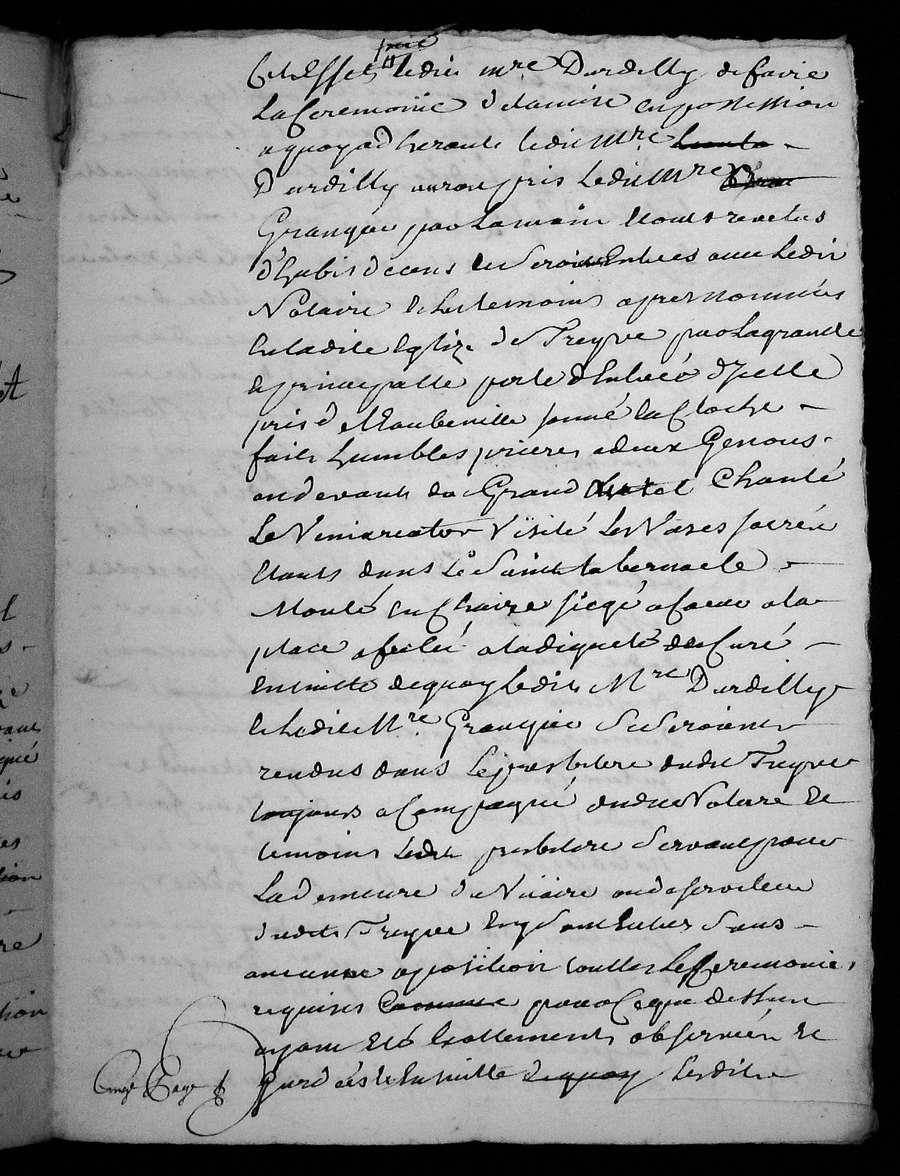 prié
Cet Effet ledit mre Durdilly de faire
La Ceremonie de la mise en possession
a quoy adherant ledit Mre
Durdilly auroit pris Ledit Mre
Grangée par La main Et nous revetus
d'habis decens Se seroient Entrés avec Ledit
Notaire & Les temoins apres nommées
En la dite Eglize de Treyve par La grande
& principalle porte d'Entrée d'Icelle
pris de L'eau benitte sonné la Cloche -
fait humbles prieres a deux Genous -
au devant du Grand Autel Chanté
Le Veni creator Visité Les Vases sacrés
Etants dans Le Saint tabernacle -
Monté En Chaire siegé a la
place afectée a la dignité de Curé -
Ensuitte de quoy Ledit Mre Durdilly
& Ledit Mre Grangée Se seroient
rendus dans Le presbitere dudit Treyve
toujours acompagné dudit Notaire &
temoins Ledit presbitere Servant pour
La demeure du Vicaire ou deserviteur
dudit Treyve Sans -
aucune oposition touttes Les Ceremonies
requises Comme par ce que dessus
ayant Eté Exattement observées &
Gardées & Ensuitte de quoy Lesdits
Page